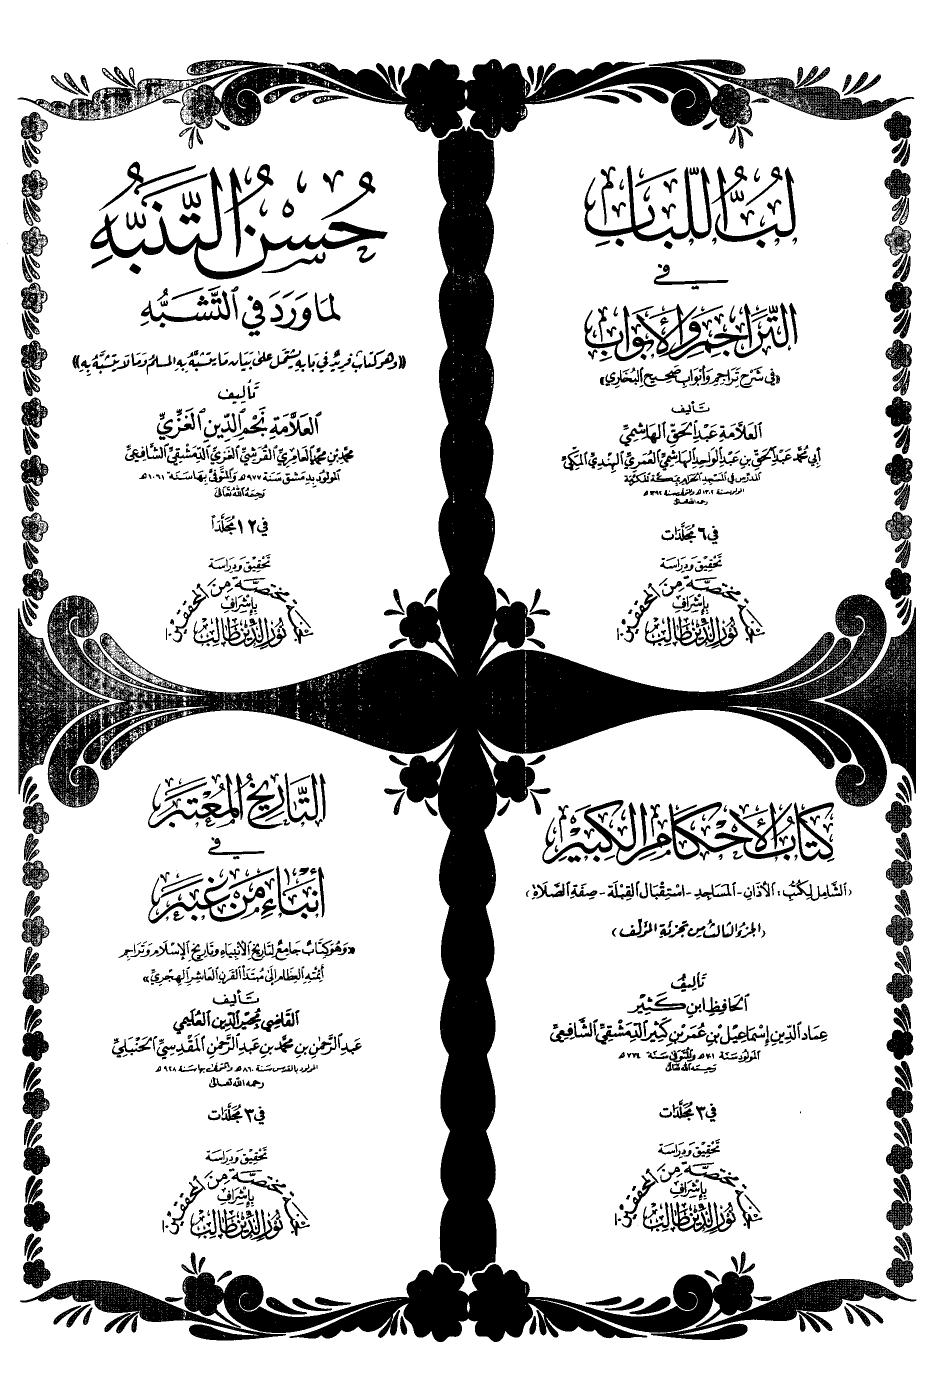 لُبُّ اللُّبَابِ
في
التَّرَاجِمِ وَالأَبْوَابِ
«في شَرْحِ تَرَاجِمِ وَأَبْوَابِ صَحِيحِ البُخَارِي»
تَأليف
العَلَّامَةِ عَبْدِ الحَقِّ الهَاشِمِيِّ
أبي مُحَمَّد عَبْدِ الحَقِّ بنِ عَبْدِ الوَاحِدِ الهَاشِمِيِّ العُمَرِيِّ الهِنْدِيِّ المَكِّيِّ
المدَرِّس في المَسْجِدِ الحَرَامِ بِمَكَّةَ المُكَرَّمَة
المولود سنة ١٣٠٢هـ والمتوفى سنة ١٣٩٢هـ
رحمه الله تعالى
في ٦ مُجَلَّدَات
تَحْقِيق وَدِرَاسَة
لجنة مختصَّة من المحققين
بإشراف
نُور الدِّين طَالِب
حُسْنُ التَّنَبُّهِ
لِمَا وَرَدَ في التَّشَبُّهِ
«وهو كتابٌ فريدٌ في بابه يشتمل على بَيَان ما يتشبَّهُ به المسلمُ وما لا يتشبَّهُ به»
تَأليف
العَلَّامَةِ نَجْمِ الدِّينِ الغَزِّيِّ
محمَّد بن محمَّد العَامِرِيِّ القُرَشِيِّ الغَزِّيِّ الدِّمَشْقِيِّ الشَّافِعِيِّ
المولود بدمشق سَنَة ٩٧٧هـ وَالمتوَفَّى بِهَا سَنَة ١٠٦١هـ
رَحِمَهُ اللهُ تَعَالَى
في ١٢ مُجَلَّدَاً
تَحْقِيق وَدِرَاسَة
لجنة مختصَّة من المحققين
بإشراف
نُور الدِّين طَالِب
كِتَابُ الأَحْكَامِ الكَبِيرِ
(الشَّامِل لِكُتُب: الأَذَانِ - المَسَاجِدِ - اسْتِقْبَالِ القِبْلَةِ - صِفَةِ الصَّلَاةِ)
(الجزء الثالث من تجزئة المؤلف)
تَأليفُ
الحَافِظِ ابنِ كَثِيْرٍ
عِمَادِ الدِّينِ إِسْمَاعِيلَ بنِ عُمَرَ بنِ كَثِيرِ الدِّمَشْقِيِّ الشَّافِعِيِّ
المولود سَنَة ٧٠١هـ والمتوفى سَنَة ٧٧٤هـ
رَحِمَهُ الله تعالى
في ٣ مُجَلَّدَات
تَحْقِيق وَدِرَاسَة
لجنة مختصَّة من المحققين
بإشراف
نُور الدِّين طَالِب
التَّاريخُ المُعْتَبَر
في
أَنْبَاءِ مَنْ غَبَر
«وَهُوَ كِتَابٌ جَامِعٌ لِتَارِيخِ الأَنْبِيَاءِ وَتَارِيخِ الإِسْلَامِ وَتَرَاجِمِ
أَئِمَّتِهِ العِظَامِ إلى مُبْتَدَأ القَرْنِ العَاشِرِ الهِجْرِيِّ»
تَأليف
القَاضِي مُجِيرِ الدِّينِ العُلَيْمِي
عَبْدِ الرَّحْمٰنِ بنِ مُحَمَّدِ بنِ عَبْدِ الرَّحْمٰنِ المَقْدِسِيِّ الحَنْبَلِيِّ
المولود بالقدس سَنة ٨٦٠هـ والمتوفى بها سنة ٩٢٨هـ
رحمه الله تعالى
في ٣ مُجَلَّدَات
تَحْقِيق وَدِرَاسَة
لجنة مختصَّة من المحققين
بإشراف
نُور الدِّين طَالِب